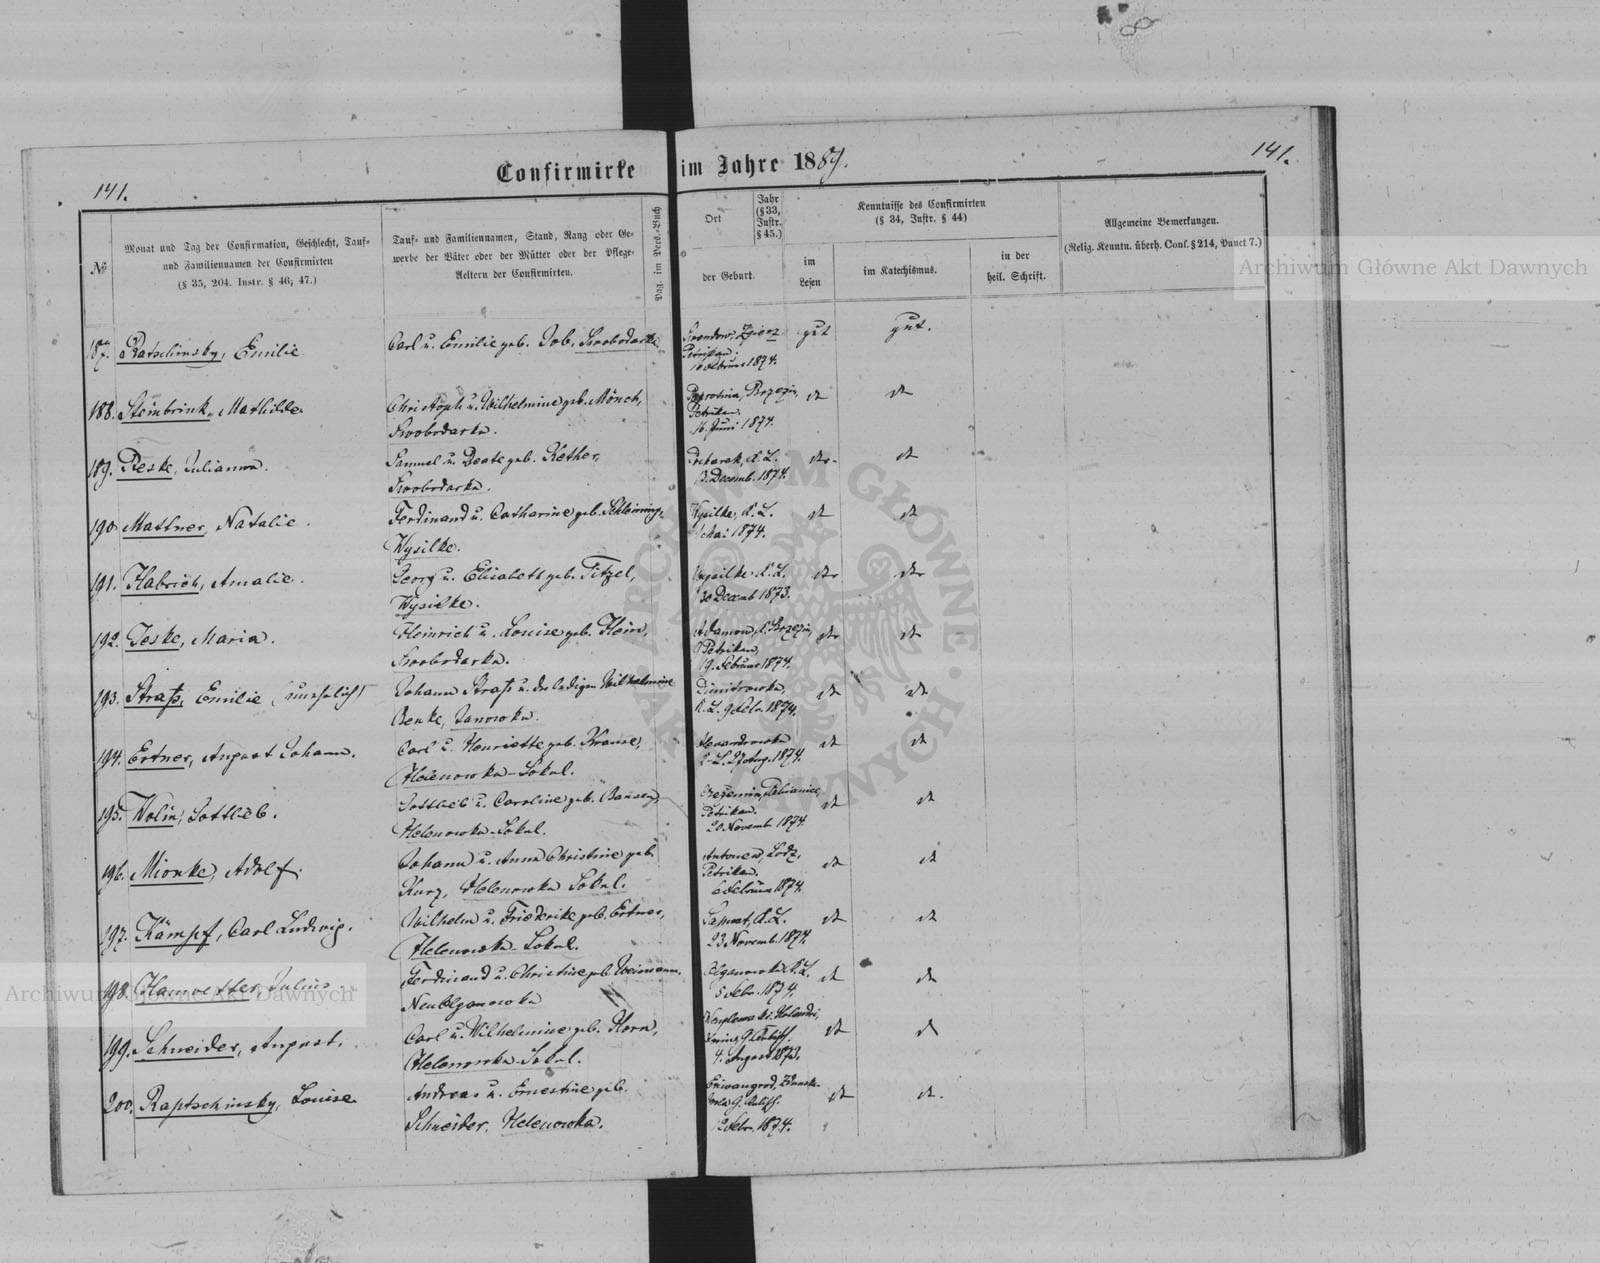 141.
Confirmirte im Jahre 1889.
141.
№
Monat und Tag der Confirmation, Geschlecht, Tauf=
und Familiennamen der Confirmirten
(§ 35, 204. Instr. § 46, 47.)
Tauf= und Familiennamen, Stand, Rang oder Ge=
werbe der Väter oder der Mütter oder der Pflege=
Aeltern der Confirmirten.
Pag. im Pers.=Buch
Ort
Jahr
(§ 33,
Instr.
§ 45.)
der Geburt.
Kenntnisse des Confirmirten
(§ 34, Instr. § 44)
im
Lesen
im Katechismus.
in der
heil. Schrift.
Allgemeine Bemerkungen.
(Relig. Kenntn. überh. Conf. § 214, Punct 7.)
187. Ratschinsky, Emilie
Carl u. Emilie geb. Job, Swobodarka
Zgierz
Februar 1874.
gut
gut.
188. Steinbrink, Mathilde
Christoph u. Wilhelmine geb. Mönch,
Swobodarka.
Brzezin,
Petrikau.
16. Juni 1874.
dt
dt
189. Reske, Julianna.
Samuel u. Beate geb. Kether,
Swobodarka.
K. L.
13. Decemb. 1874.
dto
dt
190. Mattner, Natalie.
Ferdinand u. Catharine geb. Schleining,
Wysilke.
Wysilke, K. L.
Mai 1874.
dt
dt
191. Habrich, Amalie.
Georg u. Elisabeth geb. Titzel,
Wysilke.
Wysilke K. L.
30 Decemb 1873.
dto
dto
192. Jeske, Maria.
Heinrich u. Louise geb. Hein,
Swobodarka.
Adamow, K. Brzezin,
G Petrikau,
19. Februar 1874.
dto
dto
193. Straß, Emilie (unehelich)
Johann Straß u. der ledigen Wilhelmine
Benke, Janowka.
Dimitrowka,
K. L. 9 Febr. 1874.
dt
dt
194. Ertner, August Johann.
Carl u. Henriette geb. Krause,
Helenowka-Sokul.
Alexandrowka
K. L. 27 Aug. 1874.
dt
dt
195. Wolin, Gottlieb.
Gottlieb u. Caroline geb.
Helenowka-Sokul.
Pabianice,
Petrikau.
20 Novemb. 1874.
dt
dt
196. Mionke, Adolf.
Johann u. Anna Christine geb.
Kurz, Helenowka Sokul.
Antonew, Lodz,
Petrikau.
6 Februar 1874.
dt
dt
197. Kämpf, Carl Ludwig.
Wilhelm u. Friederike geb. Ertner,
Helenowka-Sokul.
K. L.
23 Novemb. 1874.
dt
dt
198. Hamvetter, Julius.
Ferdinand u. Christine geb. Weimann.
Neu Olganowka
Olganowka K. L.
5 Febr. 1874.
dt
dt
199. Schneider, August.
Carl u. Wilhelmine geb. Horn,
Helenowka-Sokul.
4. August 1873.
dt
dt
200. Raptschinsky, Louise
Andreas u. Ernestine geb.
Schneider, Helenowka.
Zdunska
Wola G. Kalisch.
12 Febr. 1874.
dt
dt.
Archiwum Główne Akt Dawnych
Archiwum Główne Akt Dawnych